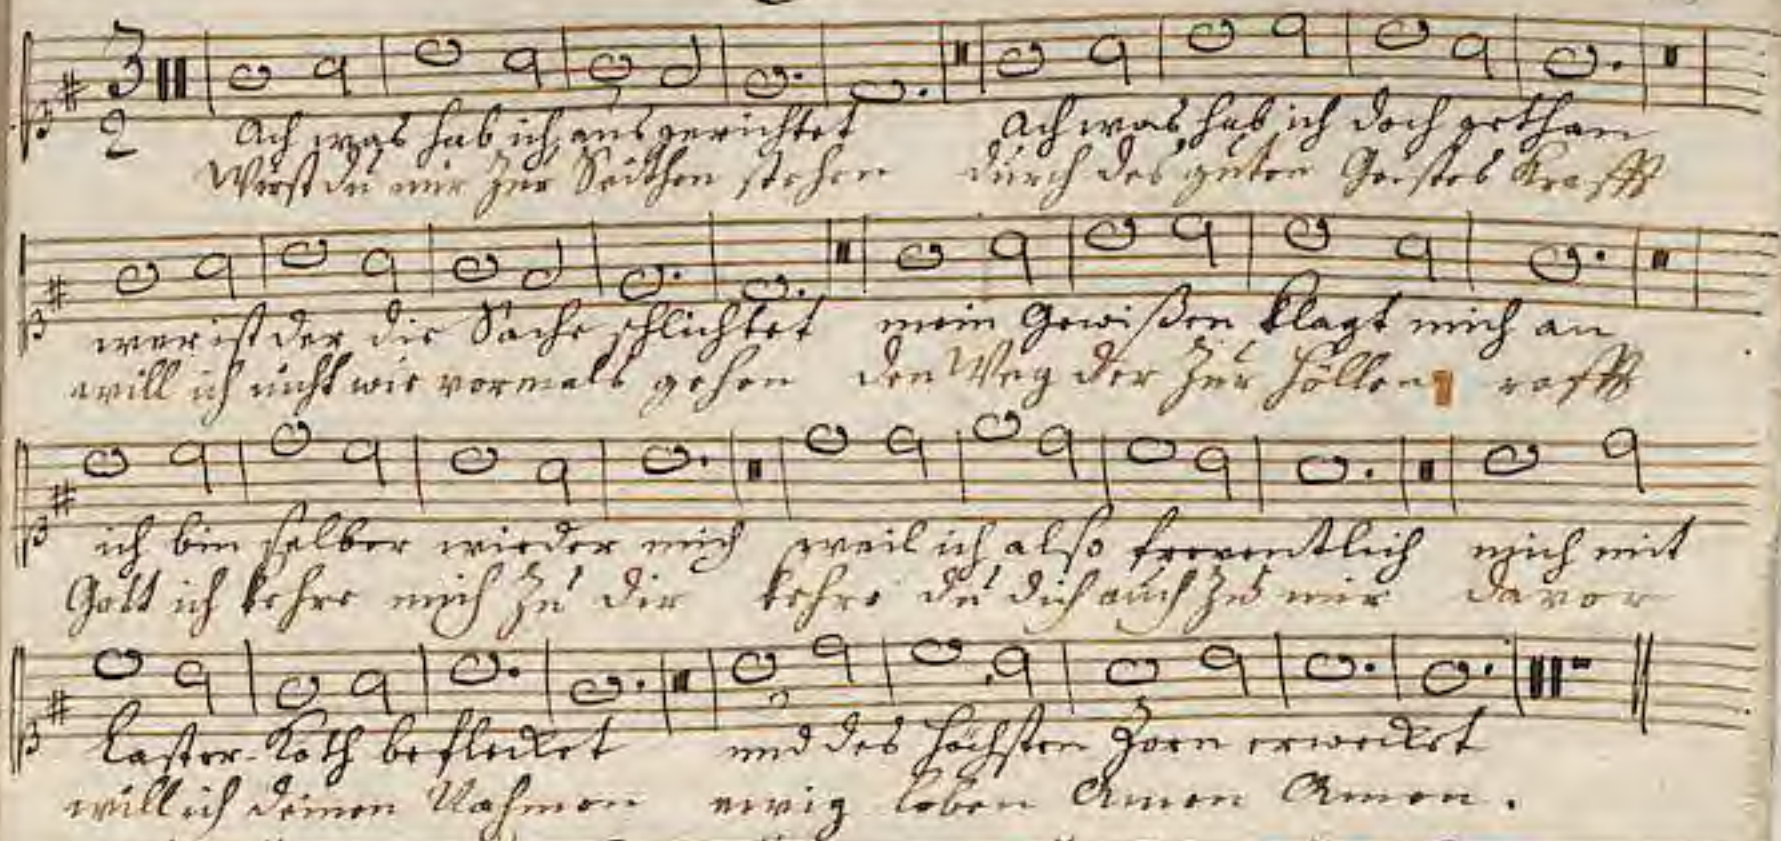 3
2
Ach was hab ich ausgerichtet Ach was hab ich doch gethan
Wirst du mir zur Seithen stehen durch des guten Geistes Krafft
wer ist der die Sache schlichtet mein Gewißen klagt mich an
will ich nicht wie vormals gehen den Weg der zur Höllen rafft
ich bin selber wieder mich weil ich also freventlich mich mit
Gott ich kehre mich zu dir kehre du dich auch zu mir davor
Laster-Koth beflecket und des Höchsten Zorn erwecket
will ich deinen Nahmen ewig loben Amen Amen.